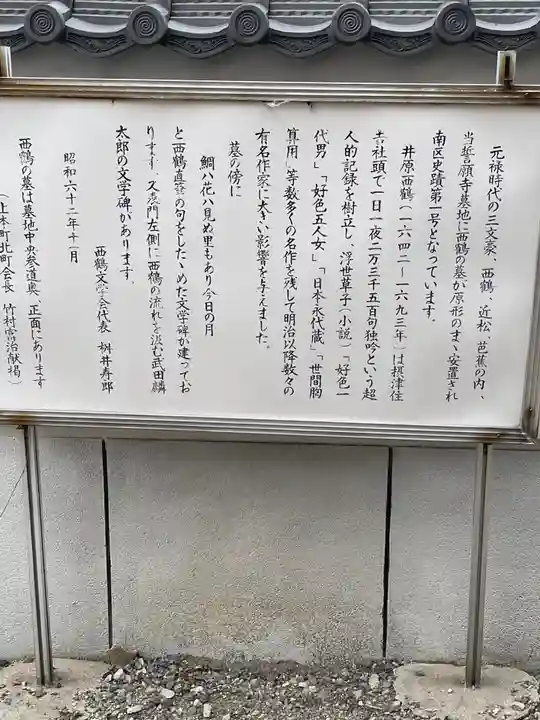 元禄時代の三文豪、西鶴、近松、芭蕉の内、
当誓願寺墓地に西鶴の墓が原形のまゝ安置され
南区史蹟第一号となっています。
井原西鶴(一六四二〜一六九三年)は摂津住
吉社頭で一日一夜二万三千五百句独吟という超
人的記録を樹立し、浮世草子(小説)「好色一
代男」「好色五人女」「日本永代蔵」「世間胸
算用」等数多くの名作を残して明治以降数々の
有名作家に大きい影響を与えました。
墓の傍に
鯛ハ花ハ見ぬ里もあり今日の月
と西鶴直筆の句をしたゝめた文学碑が建ってお
ります。又表門左側に西鶴の流れを汲む武田麟
太郎の文学碑があります。
昭和六十二年十一月
西鶴文学会代表 桝井寿郎
西鶴の墓は墓地中央参道奥、正面にあります
(上本町北町会長 竹村富治献掲)